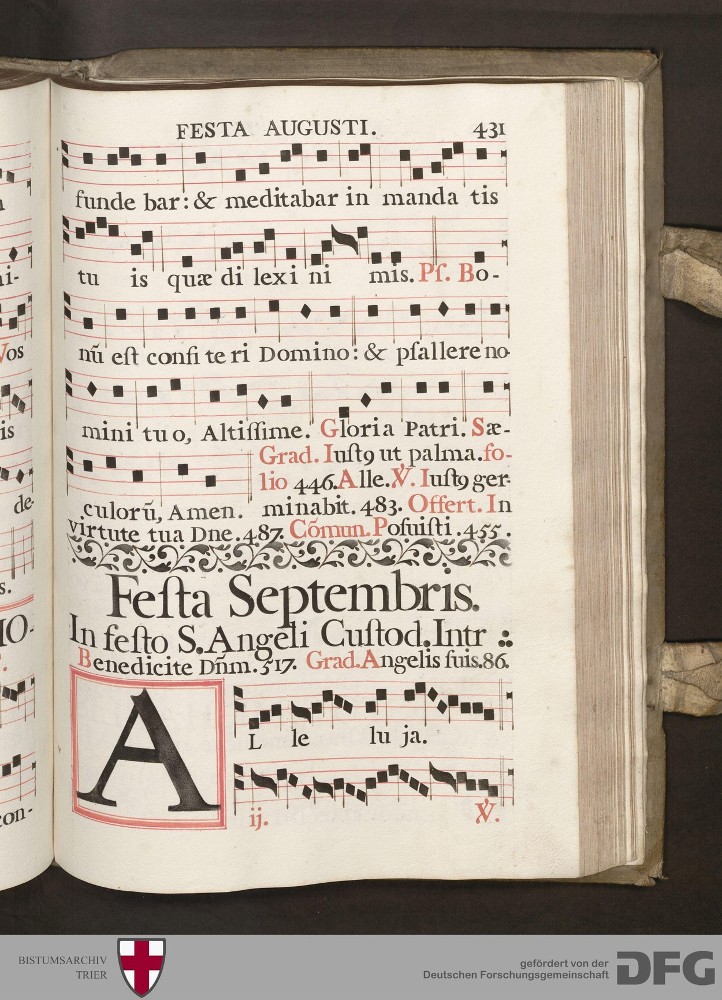 FESTA AUGUSTI. 431
funde bar: & meditabar in manda tis
tu is quæ di lexi ni mis. Pſ. Bo-
nū eſt confi te ri Domino: & pſallere no
mini tu o, Altiſſime. Gloria Patri. Sæ-
Grad. Iuſtꝯ ut palma. fo-
lio 446. Alle. ℣. Iuſtꝯ ger-
culorū, Amen. minabit. 483. Offert. In
virtute tua Dne. 487. Cōmun. Poſuiſti. 455.
Feſta Septembris.
In feſto S. Angeli Cuſtod. Intr
Benedicite Dn̄m. 517. Grad. Angelis ſuis. 86.
A L le lu ja.
ij. ℣.
ni-
Vos
is
de-
s.
IO-
con-
BISTUMSARCHIV
TRIER
gefördert von der
Deutschen Forschungsgemeinschaft
DFG